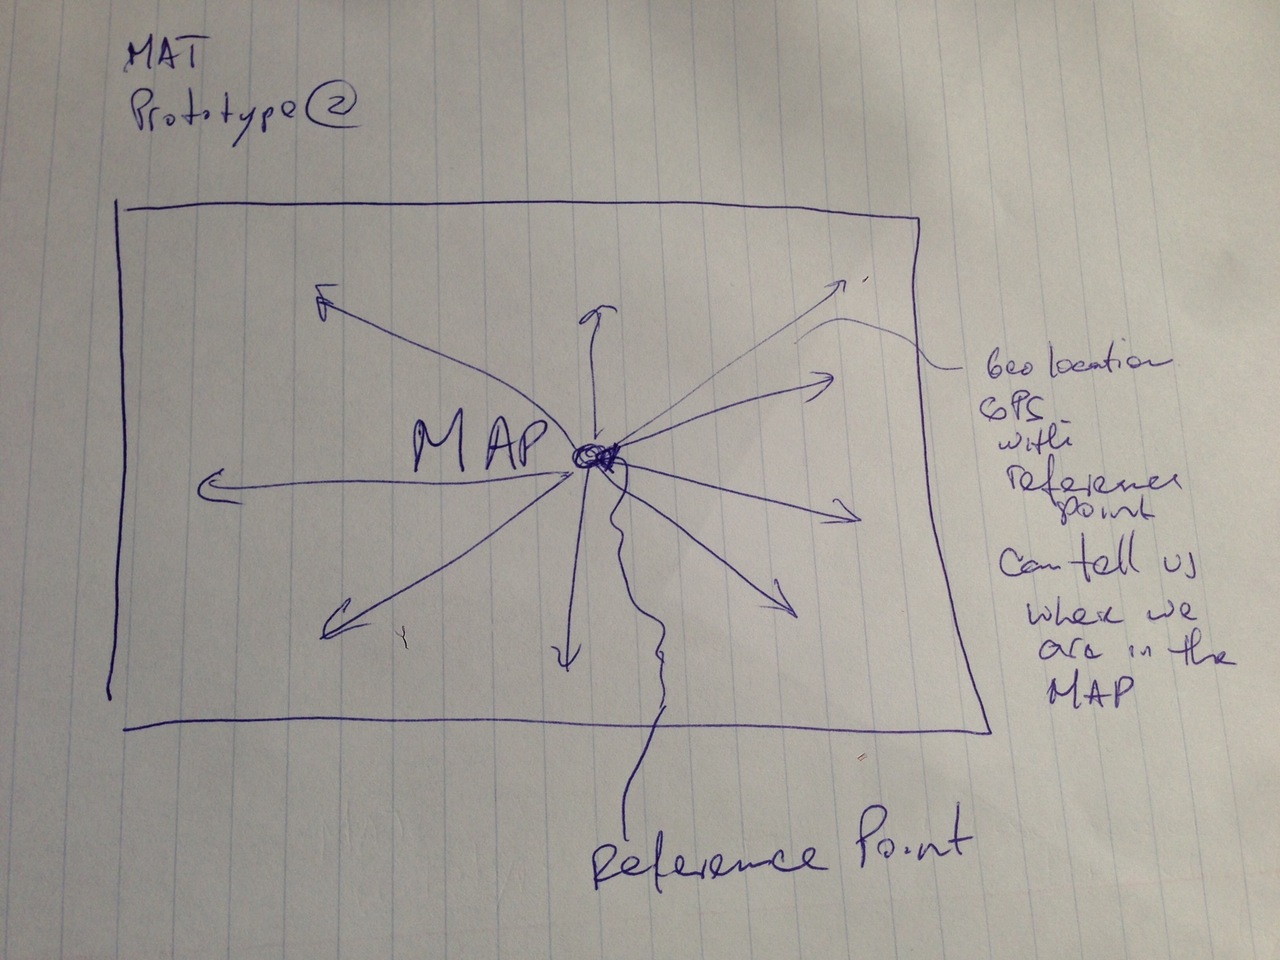 MAT
Prototype 2
MAP
Geo location
GPS
with
reference
point
Can tell us
where we
are in the
MAP
Reference Point